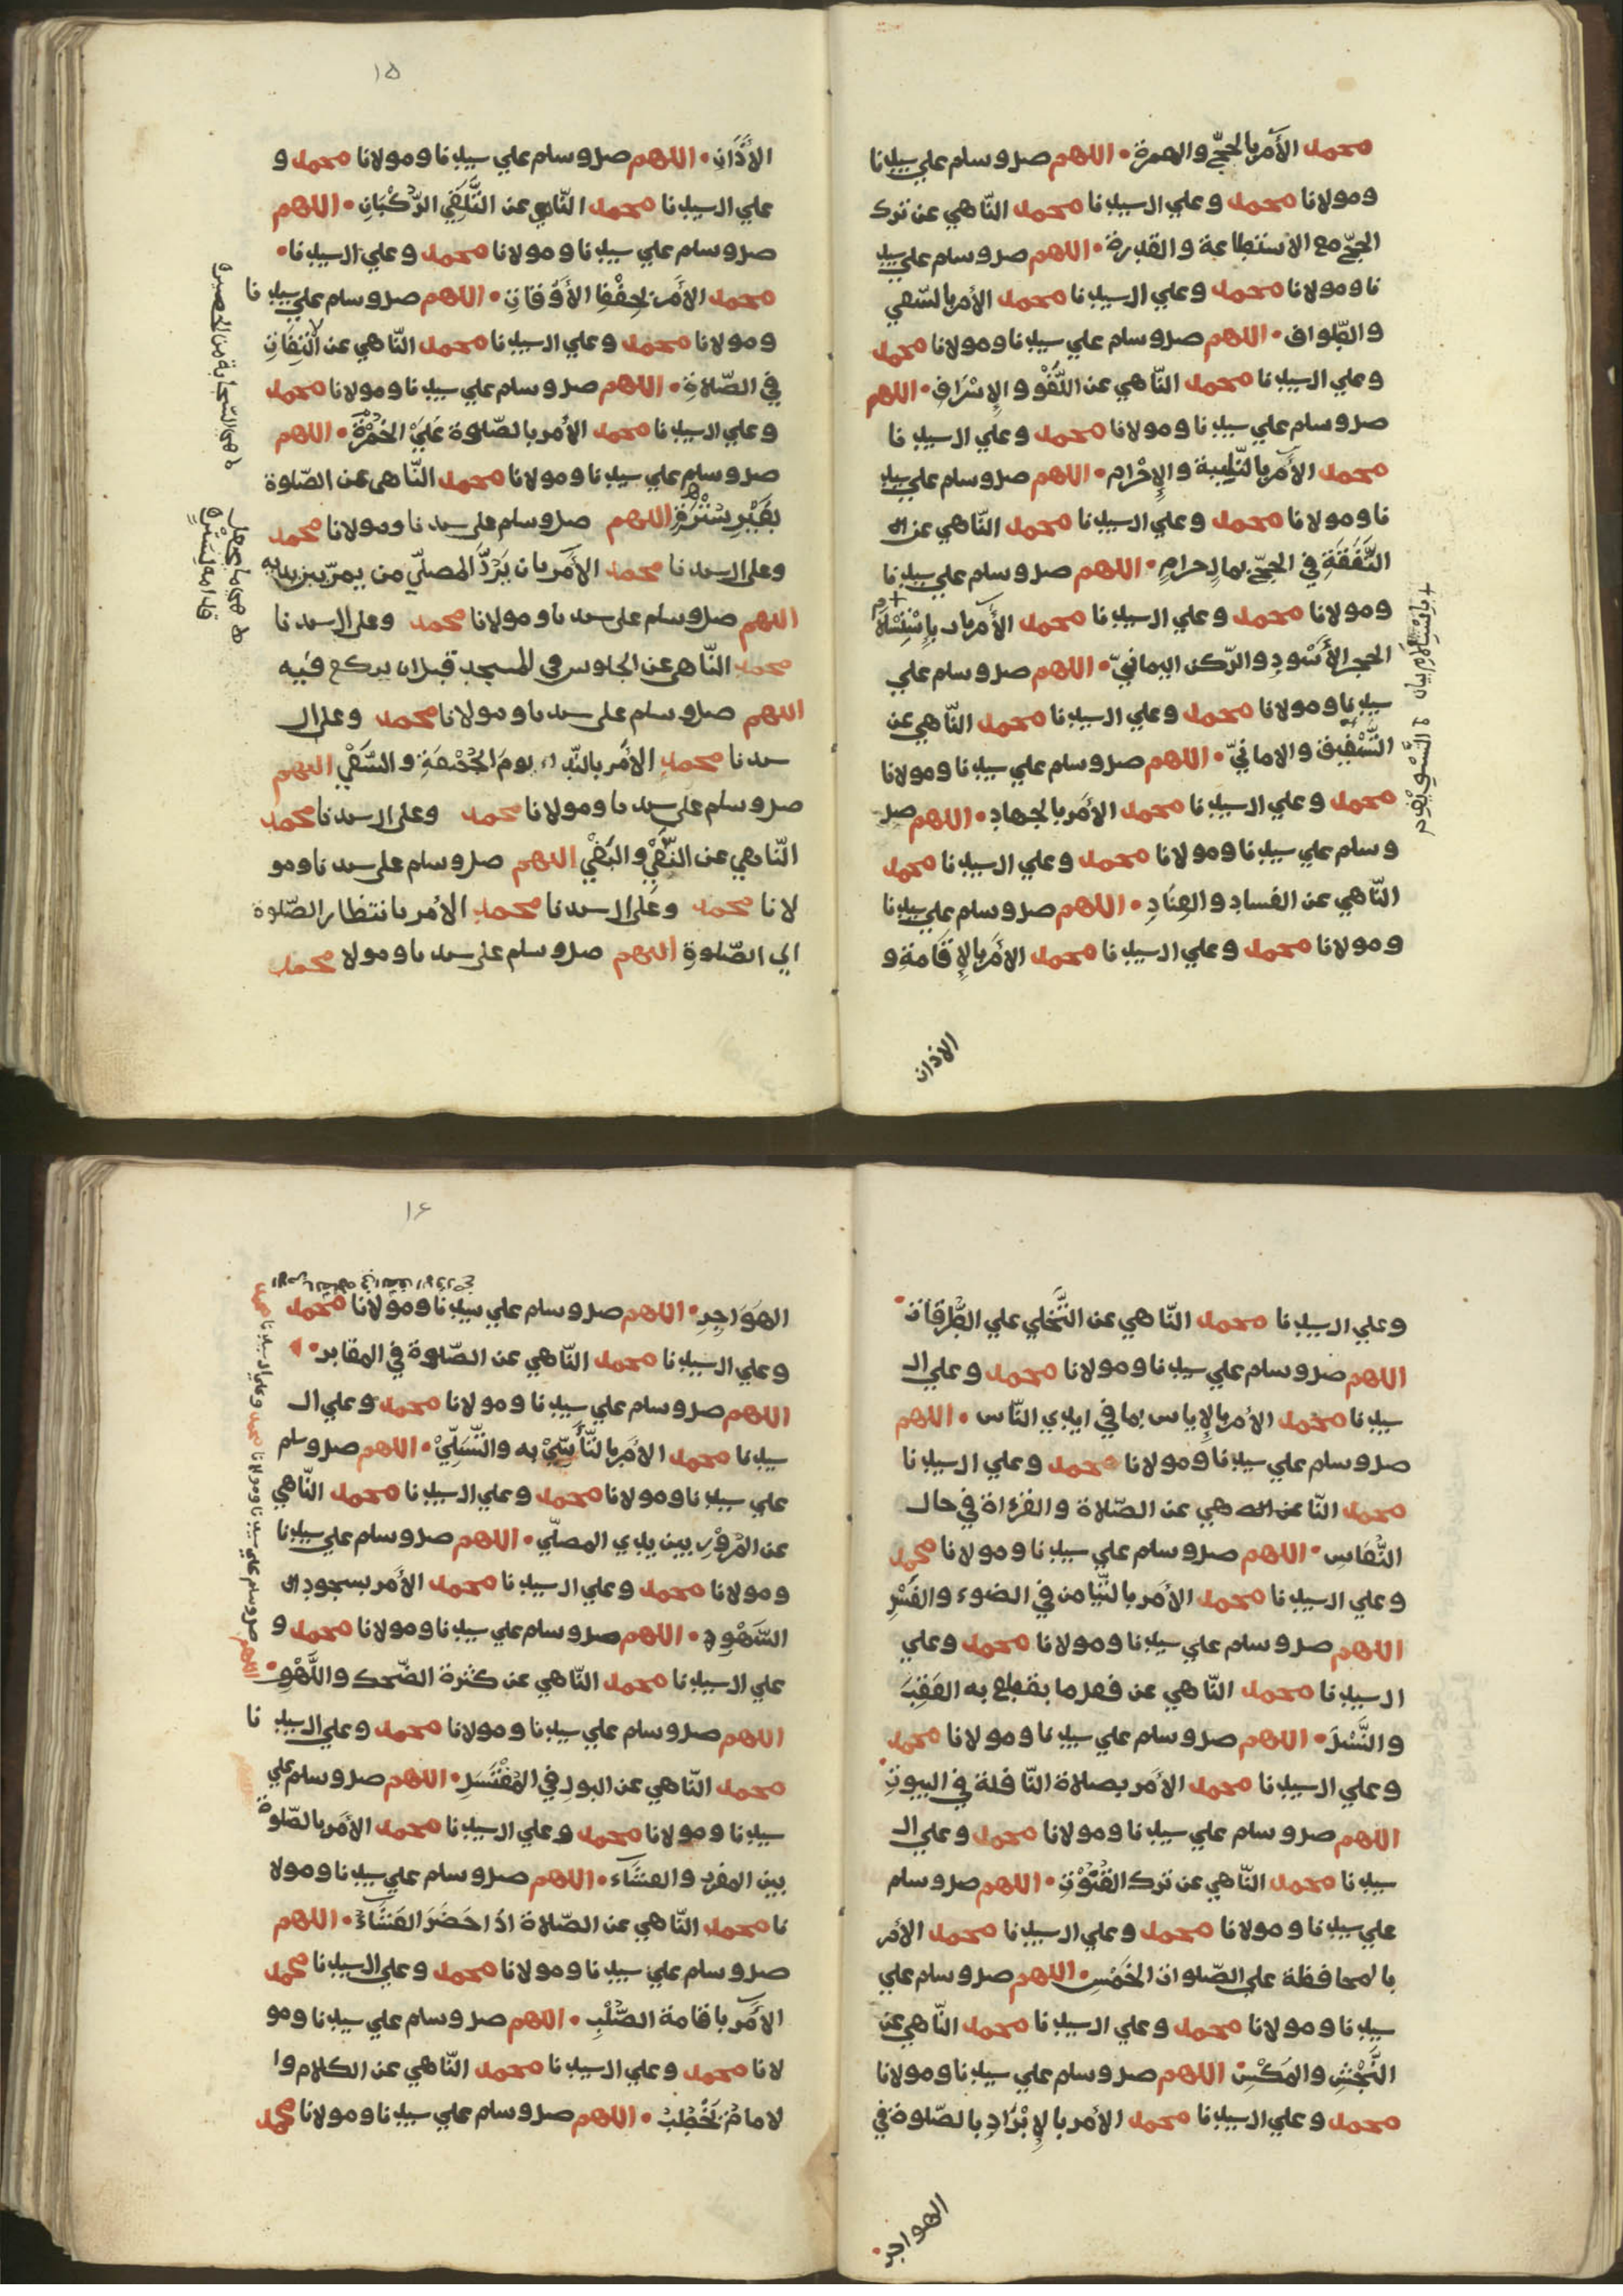 محمد الأمر بالحجّ والعمرة • اللهم صل وسلم علي سيدنا
ومولانا محمد وعلي ال سيدنا محمد النّاهي عن ترك
الحجّ مع الاستطاعة والقدرة • اللهم صل وسلم علي سيد
نا ومولانا محمد وعلي ال سيدنا محمد الأمر بالسّعي
والطّواف • اللهم صل وسلم علي سيدنا ومولانا محمد
وعلي ال سيدنا محمد النّاهي عن اللَّغْو والإسْرَافِ • اللهم
صل وسلم علي سيدنا ومولانا محمد وعلي ال سيدنا
محمد الأمر بالتّلبية والإحْرَام • اللهم صل وسلم علي سيد
نا ومولانا محمد وعلي ال سيدنا محمد النّاهي عن ال
النَّفَقَةِ في الحجّ بمال حرامٍ • اللهم صل وسلم علي سيدنا
ومولانا محمد وعلي ال سيدنا محمد الأمر باستلام
الحجر الأَسْوَدِ والرّكن اليمانيّ • اللهم صل وسلم علي
سيدنا ومولانا محمد وعلي ال سيدنا محمد النّاهي عن
التَّسْوِيْف والامانيّ • اللهم صل وسلم علي سيدنا ومولانا
محمد وعلي ال سيدنا محمد الأمر بالجهادِ • اللهم صل
وسلم علي سيدنا ومولانا محمد وعلي ال سيدنا محمد
النّاهي عن الفساد والعِنَادِ • اللهم صل وسلم علي سيدنا
ومولانا محمد وعلي ال سيدنا محمد الأمر بالإقَامَةِ و
الاذان
+ باستلام بيان
١٥
الأَذَانِ • اللهم صل وسلم علي سيدنا ومولانا محمد و
علي ال سيدنا محمد النّاهي عن التَّلَقِّي الرُّكْبَانِ • اللهم
صل وسلم علي سيدنا ومولانا محمد وعلي ال سيدنا •
محمد الأمر بحِفْظِ الأَوْقَاتِ • اللهم صل وسلم علي سيدنا
ومولانا محمد وعلي ال سيدنا محمد النّاهي عن الْتِفَاتِ
في الصّلاةِ • اللهم صل وسلم علي سيدنا ومولانا محمد
وعلي ال سيدنا محمد الأمر بالصّلوة عَلَيَ الخُمْرَةِ • اللهم
صل وسلم علي سيدنا ومولانا محمد النّاهى عن الصّلوة
بغَيْرِ سُتْرَةٍ اللهم صل وسلم على سيدنا ومولانا محمد
وعلى ال سيدنا محمد الأمر بان يَرُدَّ المصلّي من يمرّ بين يديه
اللهم صل وسلم على سيدنا ومولانا محمد وعلى ال سيدنا
محمد النّاهى عن الجلوس فى المسجد قبل ان يركع فيه
اللهم صل وسلم على سيدنا ومولانا محمد وعلى ال
سيدنا محمد الأمر بالنّداء يومَ الجُمْعَةِ والسَّعْيِ اللهم
صل وسلم على سيدنا ومولانا محمد وعلى ال سيدنا محمد
النّاهي عن النَّعْيِ والبَغْيِ اللهم صل وسلم على سيدنا ومو
لانا محمد وعلى ال سيدنا محمد الأمر بانتظار الصّلوة
الي الصّلوةِ اللهم صل وسلم على سيدنا ومولا محمد
وعلي ال سيدنا محمد النّاهي عن التَّخَلي علي الطُّرقَاتِ •
اللهم صل وسلم علي سيدنا ومولانا محمد وعلي ال
سيدنا محمد الأمر بالإياس بما في ايدي النّاس • اللهم
صل وسلم علي سيدنا ومولانا محمد وعلي ال سيدنا
محمد النّاهي عن الصّلاة والقرءاة في حال
النُّعَاسِ • اللهم صل وسلم علي سيدنا ومولانا محمد
وعلي ال سيدنا محمد الأمر بالتّيامن في الضوء والغَسْلِ
اللهم صل وسلم علي سيدنا ومولانا محمد وعلي
ال سيدنا محمد النّاهي عن فعل ما يقطع به العَقِبَ
والنَّسْلَ • اللهم صل وسلم علي سيدنا ومولانا محمد
وعلي ال سيدنا محمد الأمر بصلاة النّافلة في البيوتِ •
اللهم صل وسلم علي سيدنا ومولانا محمد وعلي ال
سيدنا محمد النّاهي عن ترك القُنُوْتِ • اللهم صل وسلم
علي سيدنا ومولانا محمد وعلي ال سيدنا محمد الأمر
بالمحافظة علي الصّلوات الخَمْسِ • اللهم صل وسلم علي
سيدنا ومولانا محمد وعلي ال سيدنا محمد النّاهي عن
النَّجْشِ والمَكْسِ • اللهم صل وسلم علي سيدنا ومولانا
محمد وعلي ال سيدنا محمد الأمر بالإبْرَادِ بالصّلوة في
الهواجر •
١٦
الهَوَاجِرِ • اللهم صل وسلم علي سيدنا ومولانا محمد
وعلي ال سيدنا محمد النّاهي عن الصّلوة في المقابر •
اللهم صل وسلم علي سيدنا ومولانا محمد وعلي ال
سيدنا محمد الأمر بالتَّأَسِّيْ به والتَّسَلِّيْ • اللهم صل وسلم
علي سيدنا ومولانا محمد وعلي ال سيدنا محمد النّاهي
عن المُرُوْرِ بين يدي المصلّي • اللهم صل وسلم علي سيدنا
ومولانا محمد وعلي ال سيدنا محمد الأمر بسجود ال
السَّهْوِ • اللهم صل وسلم علي سيدنا ومولانا محمد و
علي ال سيدنا محمد النّاهي عن كثرة الضّحك واللَّهْوِ •
اللهم صل وسلم علي سيدنا ومولانا محمد وعلي ال سيدنا
محمد النّاهي عن البول في المُغْتَسَلِ • اللهم صل وسلم علي
سيدنا ومولانا محمد وعلي ال سيدنا محمد الأمر بالصّلوة
بين المغرب والعشَاء • اللهم صل وسلم علي سيدنا ومولا
نا محمد النّاهي عن الصّلاة اذا حَضَرَ العَشَاءُ • اللهم
صل وسلم علي سيدنا ومولانا محمد وعلي ال سيدنا محمد
الأمر باقامة الصُّلْبِ • اللهم صل وسلم علي سيدنا ومو
لانا محمد وعلي ال سيدنا محمد النّاهي عن الكلام وا
لامامُ يَخْطُبُ • اللهم صل وسلم علي سيدنا ومولانا محمد
اللهم صل وسلم علي سيدنا ومولانا محمد وعلي ال سيدنا محمد